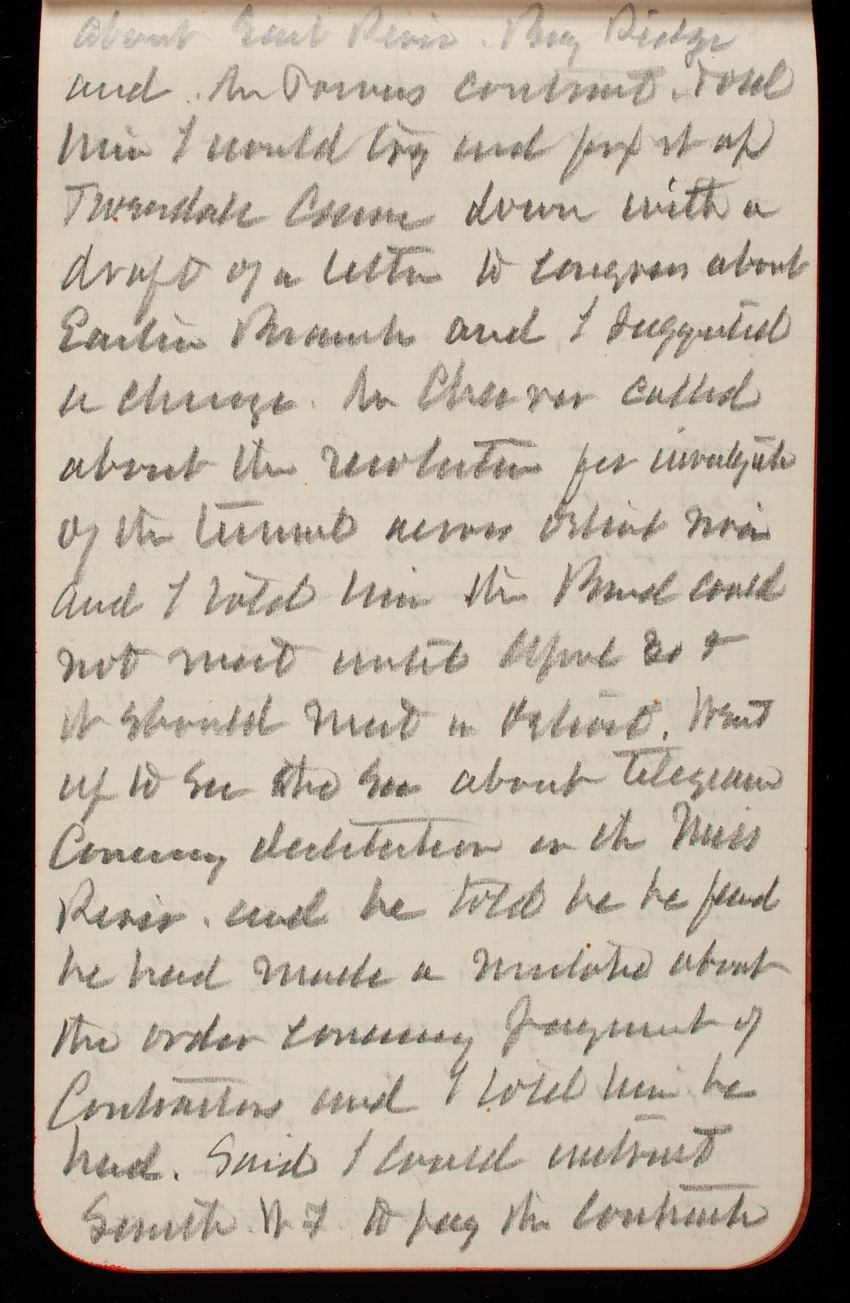 about East River. Bay Ridge
and. Mr Towers contract. Told
him I would try and fix it up
Tweedale came down with a
draft of a letter to congress about
Earlin Branch and I suggested
a change. Mr Chas ver called
about the resolution for investigate
of the tunnel across Detroit River
and I told him the Board could
not meet until April 20 &
it should meet in Detroit. Went
up to see the Sec about telegram
Concerning destitution on the Miss
River. and he told he he feard
he had made a mistake about
the order concerning payment of
Contractors and I told him he
had. Said I could instruct
Smith W F to pay the contracts